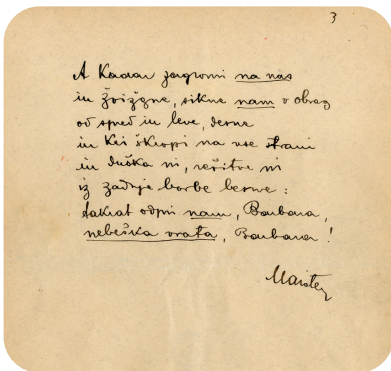 3
A kadar zagrmi na nas
in žvižgne, sikne nam v obraz
od spred in leve, desne
in kri škropi na vse strani
in duška ni, rešitve ni
iz zadnje borbe besne:
takrat odpri nam, Barbara,
nebeška vrata, Barbara!
Maister